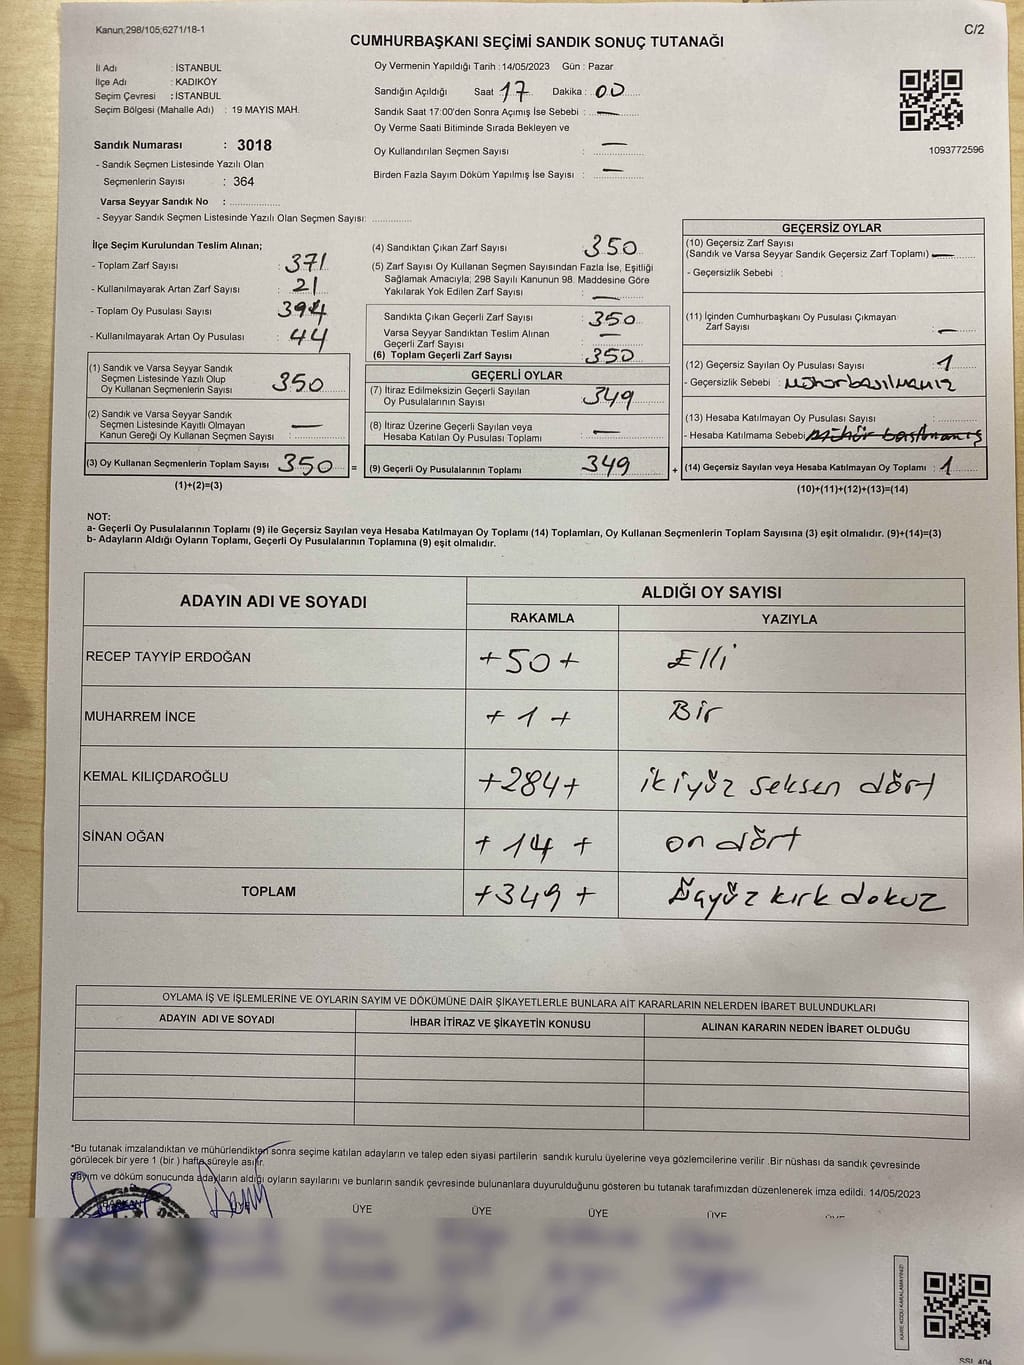 Kanun;298/105;6271/18-1
C/2
CUMHURBAŞKANI SEÇİMİ SANDIK SONUÇ TUTANAĞI
İl Adı : İSTANBUL
İlçe Adı : KADIKÖY
Seçim Çevresi : İSTANBUL
Seçim Bölgesi (Mahalle Adı) : 19 MAYIS MAH.
Sandık Numarası : 3018
- Sandık Seçmen Listesinde Yazılı Olan
Seçmenlerin Sayısı : 364
Varsa Seyyar Sandık No :
- Seyyar Sandık Seçmen Listesinde Yazılı Olan Seçmen Sayısı:
Oy Vermenin Yapıldığı Tarih :14/05/2023 Gün : Pazar
Sandığın Açıldığı Saat 17 Dakika : 00
Sandık Saat 17:00'den Sonra Açımış İse Sebebi : —
Oy Verme Saati Bitiminde Sırada Bekleyen ve
Oy Kullandırılan Seçmen Sayısı : —
Birden Fazla Sayım Döküm Yapılmış İse Sayısı : —
1093772596
İlçe Seçim Kurulundan Teslim Alınan;
- Toplam Zarf Sayısı : 371
- Kullanılmayarak Artan Zarf Sayısı : 21
- Toplam Oy Pusulası Sayısı : 394
- Kullanılmayarak Artan Oy Pusulası : 44
(1) Sandık ve Varsa Seyyar Sandık
Seçmen Listesinde Yazılı Olup
Oy Kullanan Seçmenlerin Sayısı : 350
(2) Sandık ve Varsa Seyyar Sandık
Seçmen Listesinde Kayıtlı Olmayan
Kanun Gereği Oy Kullanan Seçmen Sayısı : —
(3) Oy Kullanan Seçmenlerin Toplam Sayısı : 350 =
(1)+(2)=(3)
(4) Sandıktan Çıkan Zarf Sayısı : 350
(5) Zarf Sayısı Oy Kullanan Seçmen Sayısından Fazla İse, Eşitliği
Sağlamak Amacıyla; 298 Sayılı Kanunun 98. Maddesine Göre
Yakılarak Yok Edilen Zarf Sayısı : —
Sandıkta Çıkan Geçerli Zarf Sayısı : 350
Varsa Seyyar Sandıktan Teslim Alınan
Geçerli Zarf Sayısı : —
(6) Toplam Geçerli Zarf Sayısı : 350
GEÇERLİ OYLAR
(7) İtiraz Edilmeksizin Geçerli Sayılan
Oy Pusulalarının Sayısı : 349
(8) İtiraz Üzerine Geçerli Sayılan veya
Hesaba Katılan Oy Pusulası Toplamı : —
(9) Geçerli Oy Pusulalarının Toplamı : 349 +
GEÇERSİZ OYLAR
(10) Geçersiz Zarf Sayısı
(Sandık ve Varsa Seyyar Sandık Geçersiz Zarf Toplamı) : —
- Geçersizlik Sebebi :
(11) İçinden Cumhurbaşkanı Oy Pusulası Çıkmayan
Zarf Sayısı : —
(12) Geçersiz Sayılan Oy Pusulası Sayısı : 1
- Geçersizlik Sebebi :
(13) Hesaba Katılmayan Oy Pusulası Sayısı :
- Hesaba Katılmama Sebebi
(14) Geçersiz Sayılan veya Hesaba Katılmayan Oy Toplamı : 1
(10)+(11)+(12)+(13)=(14)
NOT:
a- Geçerli Oy Pusulalarının Toplamı (9) ile Geçersiz Sayılan veya Hesaba Katılmayan Oy Toplamı (14) Toplamları, Oy Kullanan Seçmenlerin Toplam Sayısına (3) eşit olmalıdır. (9)+(14)=(3)
b- Adayların Aldığı Oyların Toplamı, Geçerli Oy Pusulalarının Toplamına (9) eşit olmalıdır.
ADAYIN ADI VE SOYADI
ALDIĞI OY SAYISI
RAKAMLA YAZIYLA
RECEP TAYYİP ERDOĞAN +50+ Elli
MUHARREM İNCE +1+ Bir
KEMAL KILIÇDAROĞLU +284+ ikiyüz seksen dört
SİNAN OĞAN +14+ on dört
TOPLAM +349+ Üçyüz kırk dokuz
OYLAMA İŞ VE İŞLEMLERİNE VE OYLARIN SAYIM VE DÖKÜMÜNE DAİR ŞİKAYETLERLE BUNLARA AİT KARARLARIN NELERDEN İBARET BULUNDUKLARI
ADAYIN ADI VE SOYADI İHBAR İTİRAZ VE ŞİKAYETİN KONUSU ALINAN KARARIN NEDEN İBARET OLDUĞU
*Bu tutanak imzalandıktan ve mühürlendikten sonra seçime katılan adayların ve talep eden siyasi partilerin sandık kurulu üyelerine veya gözlemcilerine verilir .Bir nüshası da sandık çevresinde
görülecek bir yere 1 (bir ) hafta süreyle asılır.
Sayım ve döküm sonucunda adayların aldığı oyların sayılarını ve bunların sandık çevresinde bulunanlara duyurulduğunu gösteren bu tutanak tarafımızdan düzenlenerek imza edildi. 14/05/2023
BAŞKAN ÜYE ÜYE ÜYE ÜYE ÜYE
KARE KODU KARALAMAYINIZ!